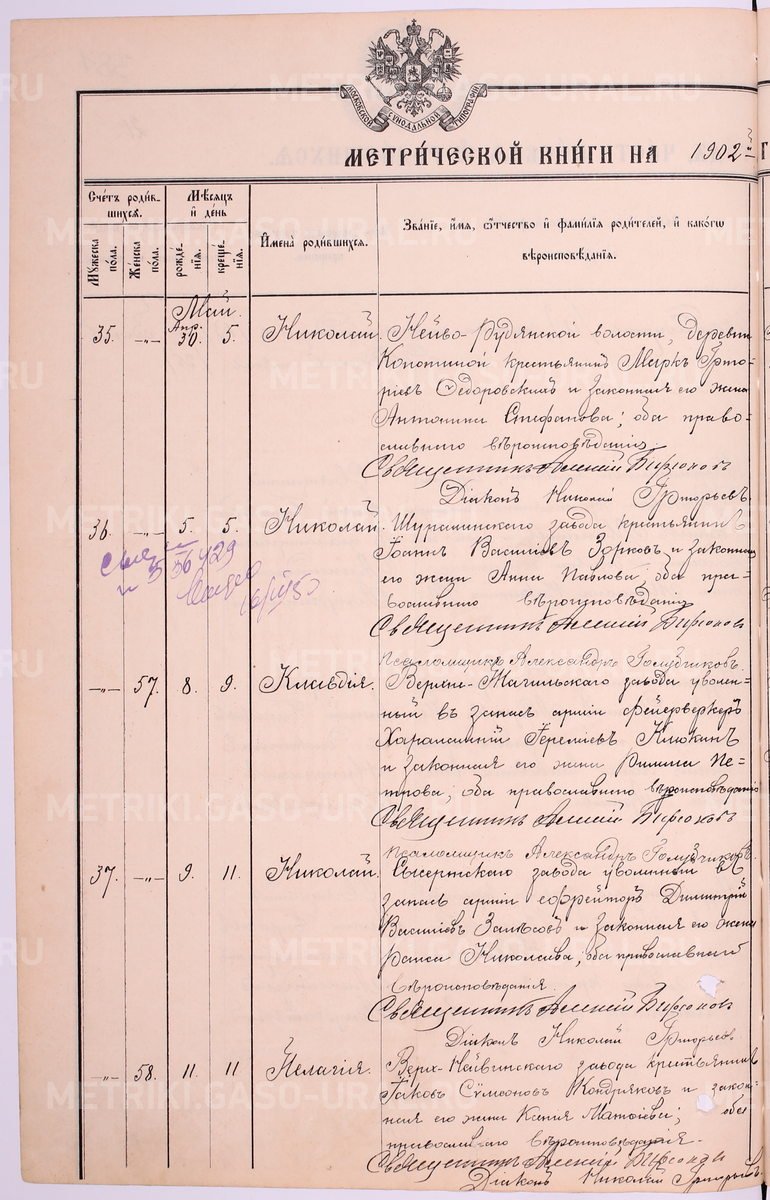 МОСКОВСКОЙ СУНОДАЛЬНОЙ ТИПОГРАФІИ
МЕТРИ́ЧЕСКОЙ КНИ́ГИ НА 1902 й Г
Сче́тъ роди́вшихсѧ.
Мꙋ́жеска по́ла.
Же́нска по́ла.
Мѣ́сѧцъ и де́нь
рожде́нїѧ.
креще́нїѧ.
И҆мена̀ роди́вшихсѧ.
Зва́нїе, и҆́мѧ, ѻ҆́тчество и҆ фами́лїѧ роди́телей, и҆ како́гѡ
вѣроисповѣ́данїѧ.
Май.
35. -„- Апр. 30. 5. Николай. Нейво-Рудянской волости, деревни
Копотиной крестьянинъ Маркъ Григо-
ріевъ Ѳедоровскихъ и законная его жена
Антонина Стефанова; оба право-
славнаго вѣроисповѣданія.
Священникъ Алексій
Діаконъ Николай Григорьевъ.
36. -„- 5. 5. Николай. Шуралинскаго завода крестьянинъ
Іоаннъ Василіевъ Зорковъ и законная
его жена Анна Павлова, оба пра-
вославнаго вѣроисповѣданія
Священникъ Алексій
Псаломщикъ Александръ Голубчиковъ.
-„- 57. 8. 9. Клавдія. Верхне-Тагильскаго завода уволен-
ный въ запасъ арміи фейерверкеръ
Харалампій Іереміевъ
и законная его жена Римма Пе-
трова; оба православнаго вѣроисповѣданія
Священникъ Алексій
Псаломщикъ Александръ Голубчиковъ.
37. -„- 9. 11. Николай. Сысертскаго завода уволенный въ
запасъ арміи ефрейторъ Димитрій
Василіевъ и законная его жена
Раиса Николаева, оба православнаго
вѣроисповѣданія.
Священникъ Алексій
Діаконъ Николай Григорьевъ.
-„- 58. 11. 11. Пелагія. Верх-Нейвинскаго завода крестьянинъ
Іаковъ Сѵмеоновъ Кондряковъ и закон-
ная его жена Ксенія; оба
православнаго вѣроисповѣданія.
Священникъ Алексій
Діаконъ Николай Григорьевъ
METRIKI.GASO-URAL.RU